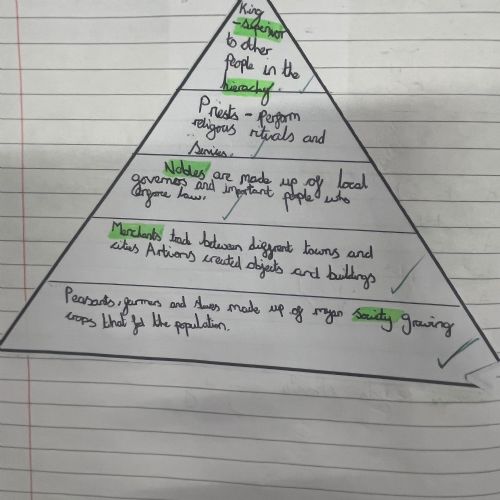 King
-superior
to other
people in the
hierachy.
Priests - perform
religous rituals and
Services.
Nobles are made up of local
governers and important people who
enforce law.
Merchants trade between diffrent towns and
cities Artisans created objects and buildings
Peasants, farmers and slaves made up of mayan society growing
crops that fed the population.